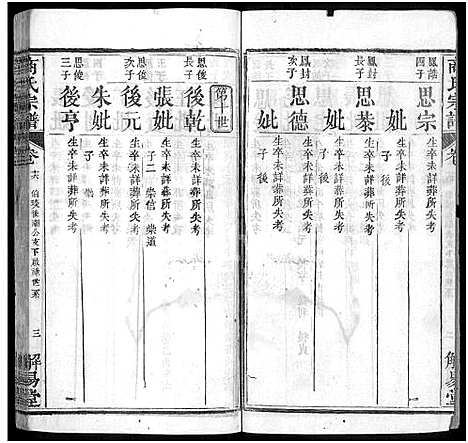 商氏宗譜
解易堂
鳳誥
四子
思宗
生卒未詳葬所失考
妣
子
後
鳳封
長子
思恭
生卒未詳葬所失考
妣
子
後
鳳封
次子
思德
生卒未詳葬所失考
妣
子
後
第十一世
思俊
長子
後乾
生卒未詳葬所失考
張妣
子二
崇信
崇道
思俊
次子
後元
生卒未詳葬所失考
朱妣
子
後
思俊
三子
後亨
生卒未詳葬所失考
商氏宗譜
卷
三
解易堂